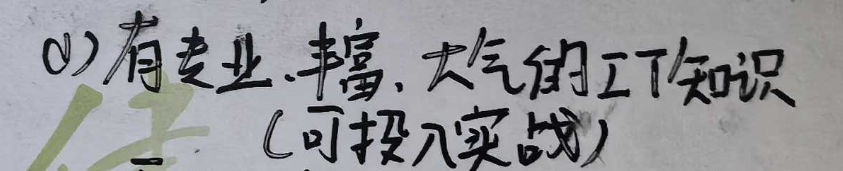 (1)有专业、丰富、大气的IT知识
(可投入实战)